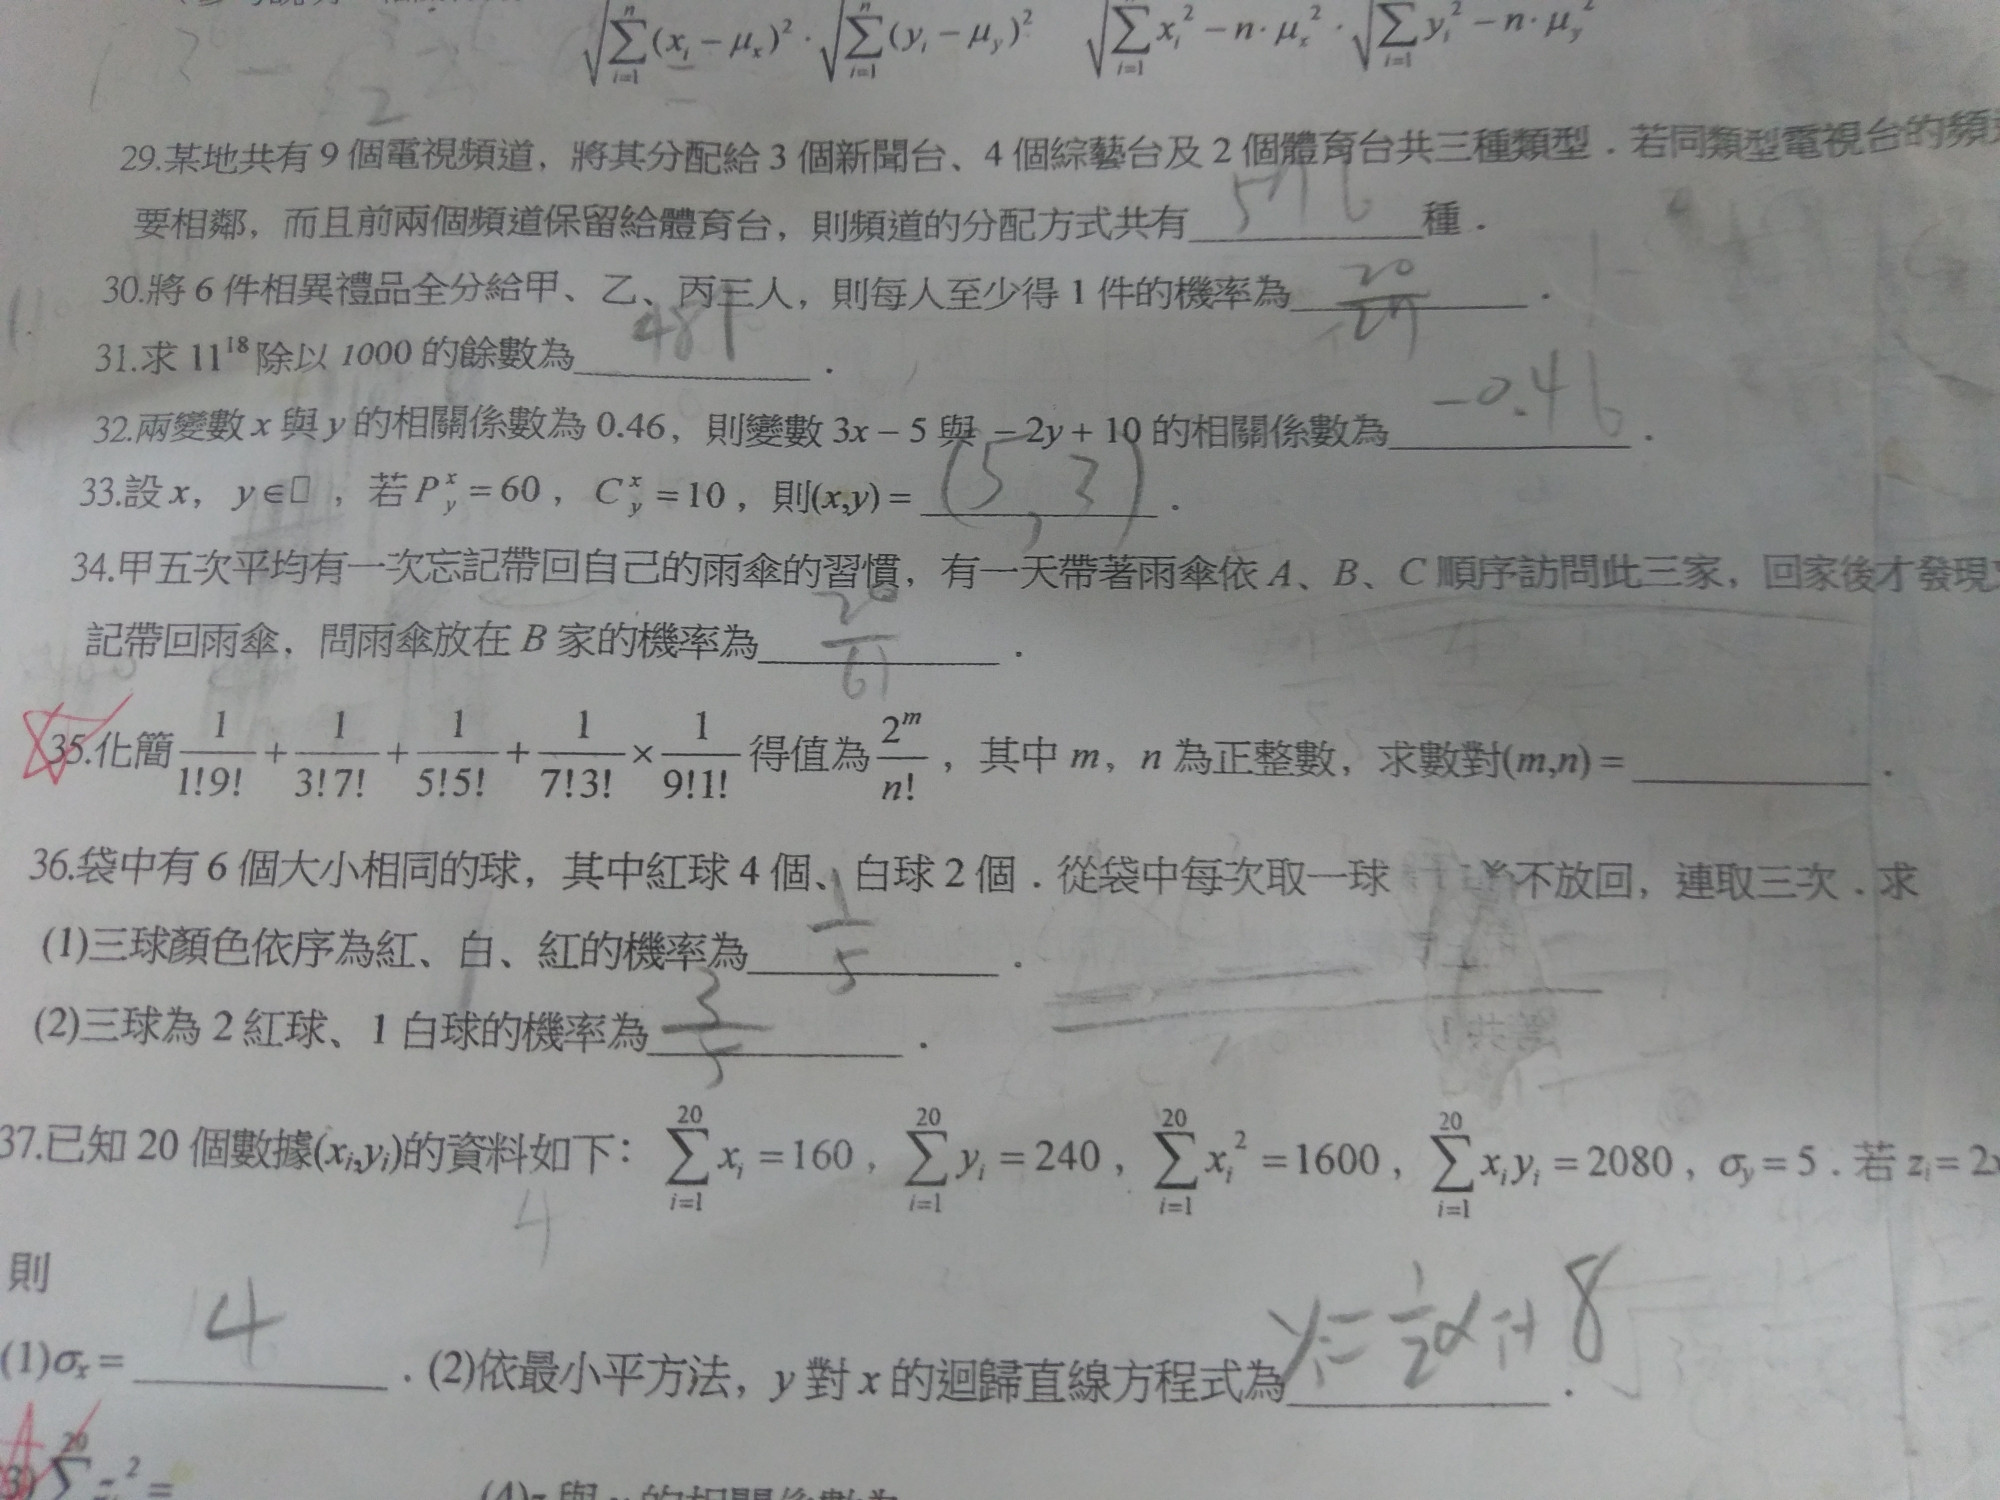 √∑(xᵢ − μₓ)² · √∑(yᵢ − μᵧ)² √∑xᵢ² − n·μₓ² · √∑yᵢ² − n·μᵧ²
29.某地共有 9 個電視頻道，將其分配給 3 個新聞台、4 個綜藝台及 2 個體育台共三種類型．若同類型電視台的頻
要相鄰，而且前兩個頻道保留給體育台，則頻道的分配方式共有 576 種．
30.將 6 件相異禮品全分給甲、乙、丙三人，則每人至少得 1 件的機率為 20/27 ．
31.求 11¹⁸ 除以 1000 的餘數為 481 ．
32.兩變數 x 與 y 的相關係數為 0.46，則變數 3x − 5 與 − 2y + 10 的相關係數為 −0.46 ．
33.設 x，y∈□，若 Pˣᵧ = 60，Cˣᵧ = 10，則(x,y) = (5,3) ．
34.甲五次平均有一次忘記帶回自己的雨傘的習慣，有一天帶著雨傘依 A、B、C 順序訪問此三家，回家後才發現
記帶回雨傘，問雨傘放在 B 家的機率為 20/61 ．
35.化簡 1/1!9! + 1/3!7! + 1/5!5! + 1/7!3! × 1/9!1! 得值為 2ᵐ/n!，其中 m，n 為正整數，求數對(m,n) = ．
36.袋中有 6 個大小相同的球，其中紅球 4 個、白球 2 個．從袋中每次取一球 不放回，連取三次．求
(1)三球顏色依序為紅、白、紅的機率為 1/5 ．
(2)三球為 2 紅球、1 白球的機率為 3/5 ．
37.已知 20 個數據(xᵢ,yᵢ)的資料如下：∑xᵢ = 160，∑yᵢ = 240，∑xᵢ² = 1600，∑xᵢyᵢ = 2080，σᵧ = 5．若 zᵢ = 2x
則
(1)σₓ = 4 ．(2)依最小平方法，y 對 x 的迴歸直線方程式為 y = 1/2 x + 8 ．